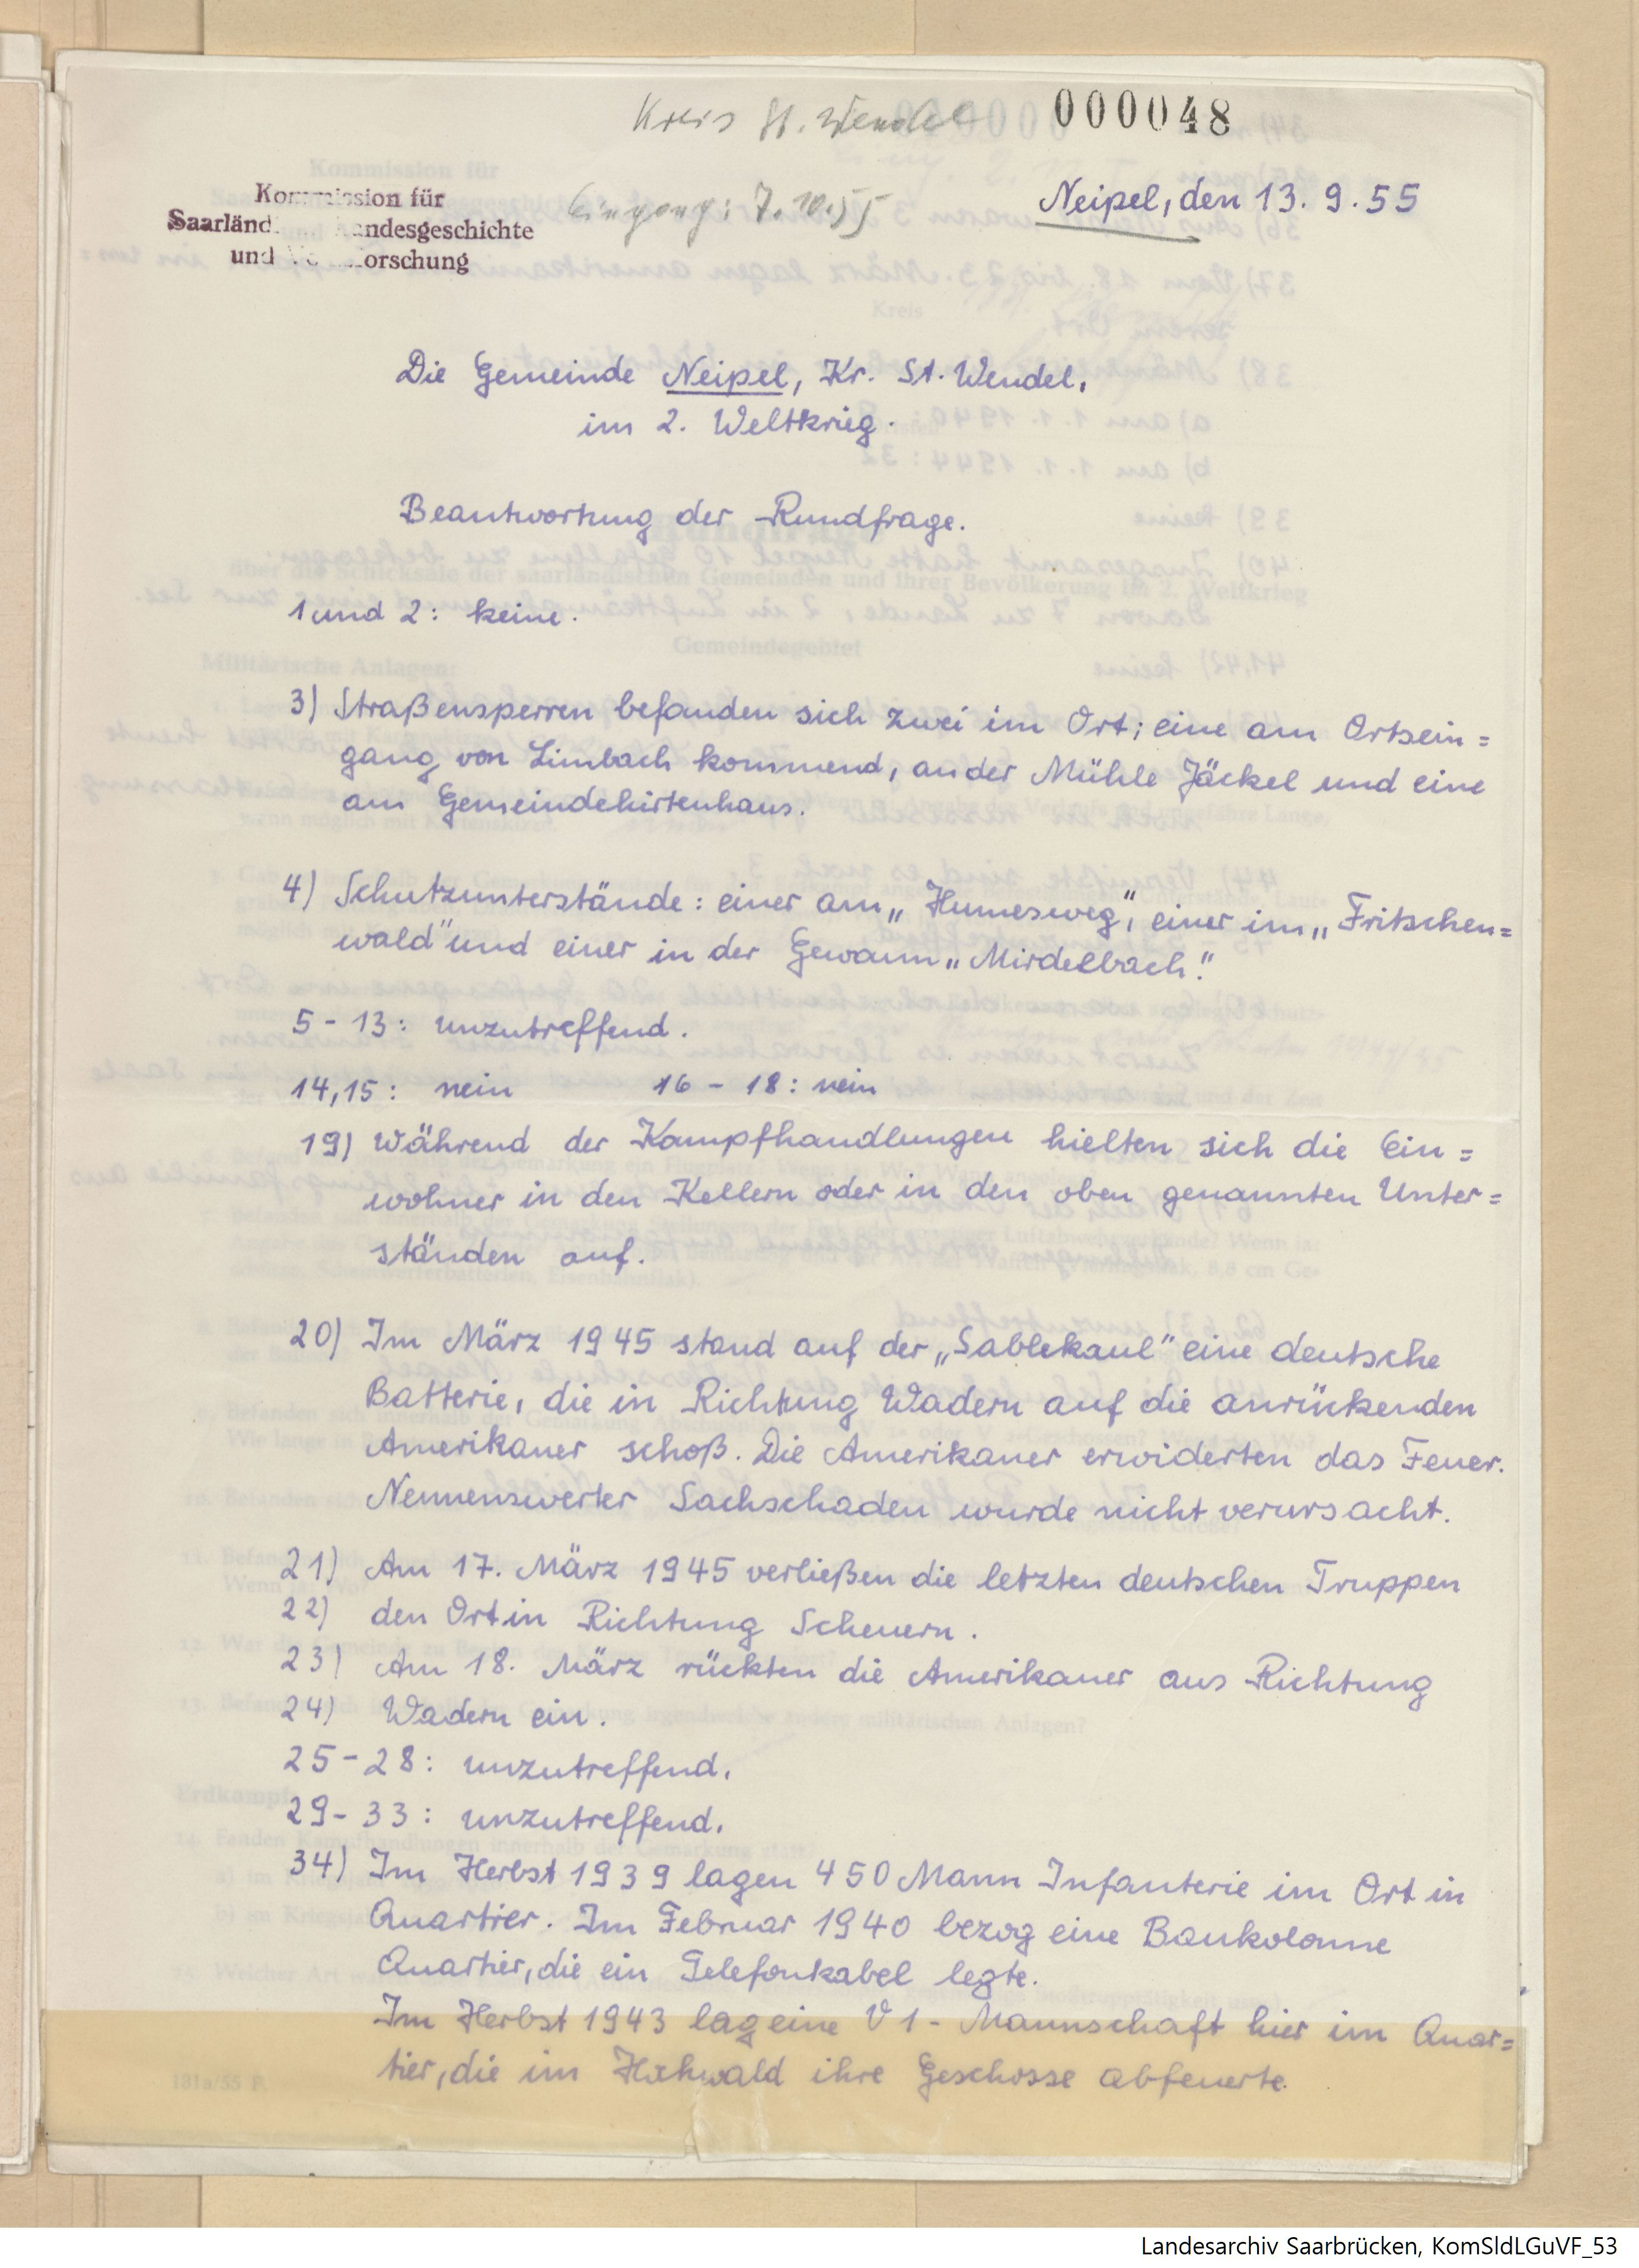 Kreis St. Wendel
000048
Kommission für
Saarländ. Landesgeschichte
und Volksforschung
Eingang: 7.10.55
Neipel, den 13. 9. 55
Die Gemeinde Neipel, Kr. St. Wendel,
im 2. Weltkrieg.
Beantwortung der Rundfrage.
1 und 2: keine.
3) Straßensperren befanden sich zwei im Ort; eine am Ortsein=
gang von Limbach kommend, an der Mühle Jäckel und eine
am Gemeindehirtenhaus.
4) Schutzunterstände: einer am „Humesweg", einer im „Fritschen=
wald" und einer in der Gewann „Mirdelbach".
5 - 13: unzutreffend.
14, 15: nein 16 - 18: nein
19) Während der Kampfhandlungen hielten sich die Ein=
wohner in den Kellern oder in den oben genannten Unter=
ständen auf.
20) Im März 1945 stand auf der „Sablekaul" eine deutsche
Batterie, die in Richtung Wadern auf die anrückenden
Amerikaner schoß. Die Amerikaner erwiderten das Feuer.
Nennenswerter Sachschaden wurde nicht verursacht.
21) Am 17. März 1945 verließen die letzten deutschen Truppen
22) den Ort in Richtung Scheuern.
23) Am 18. März rückten die Amerikaner aus Richtung
24) Wadern ein.
25 - 28: unzutreffend.
29 - 33: unzutreffend.
34) Im Herbst 1939 lagen 450 Mann Infanterie im Ort in
Quartier. Im Februar 1940 bezog eine Baukolonne
Quartier, die ein Telefonkabel legte.
Im Herbst 1943 lag eine V1 - Mannschaft hier im Quar=
tier, die im Hochwald ihre Geschosse abfeuerte.
181a/55 F.
Landesarchiv Saarbrücken, KomSldLGuVF_53